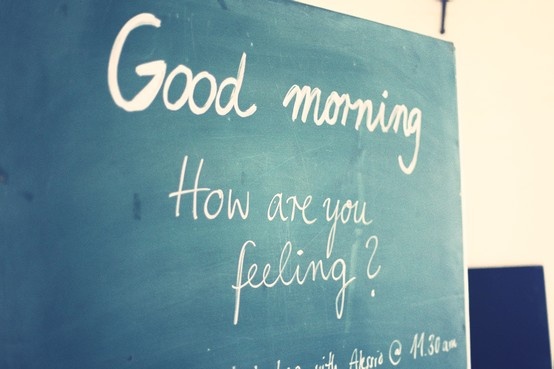 Good morning
How are you
feeling?
with Alessio @ 11.30 am